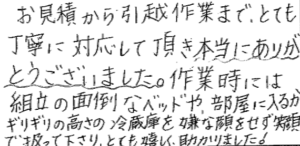 お見積から引越作業まで、とても
丁寧に対応して頂き本当にありが
とうございました。作業時には
組立の面倒なベッドや、部屋に入るか
ギリギリの高さの冷蔵庫を嫌な顔をせず笑顔
で扱って下さり、とても嬉しく助かりました！